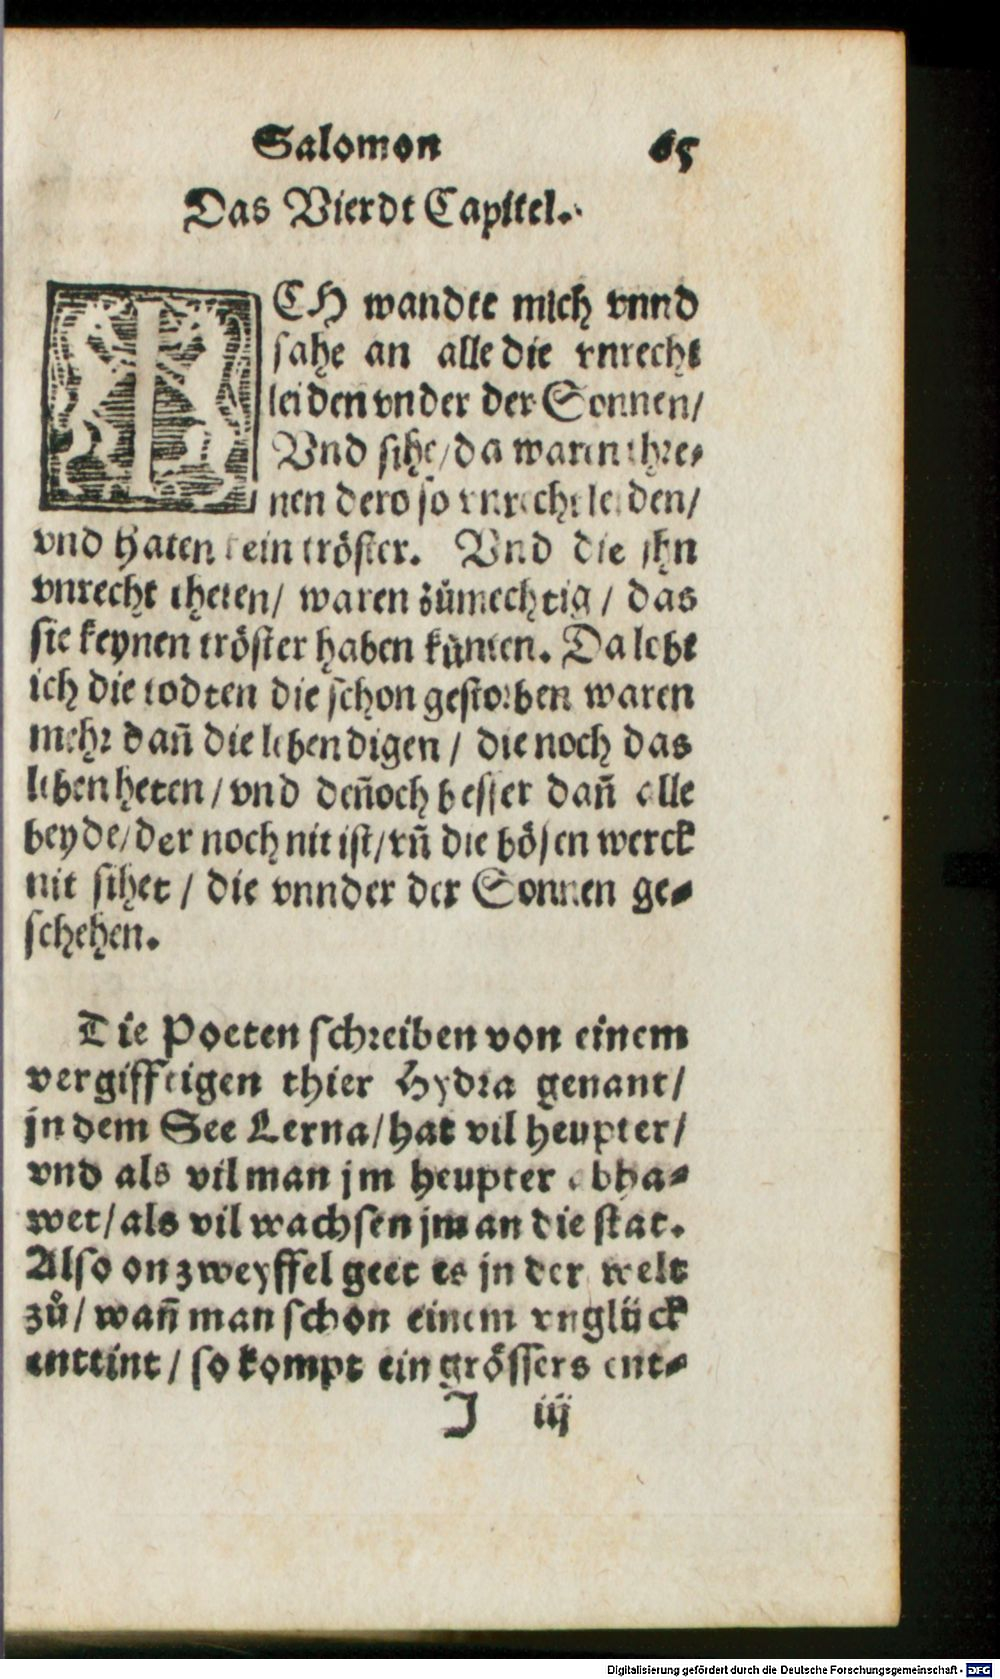 Salomon 65
Das Vierdt Capitel.
ICH wandte mich vnnd
sahe an alle die vnrecht
leiden vnder der Sonnen/
Vnd sihe/da waren thre-
nen dero so vnrecht leiden/
vnd haten kein tröster. Vnd die jhn
vnrecht theten/ waren zůmechtig/ das
sie keynen tröster haben kunten. Da lobt
ich die todten die schon gestorben waren
mehr dañ die lebendigen/ die noch das
leben heten/vnd deñoch besser dañ alle
beyde/der noch nit ist/vñ die bösen werck
nit sihet/ die vnnder der Sonnen ge-
schehen.
Die Poeten schreiben von einem
vergifftigen thier Hydra genant/
jn dem See Lerna/hat vil heupter/
vnd als vil man jm heupter abha-
wet/als vil wachsen jm an die stat.
Also on zweyffel geet es jn der welt
zů/ wañ man schon einem vnglück
enttint/ so kompt ein grössers ent-
J iij
Digitalisierung gefördert durch die Deutsche Forschungsgemeinschaft - DFG